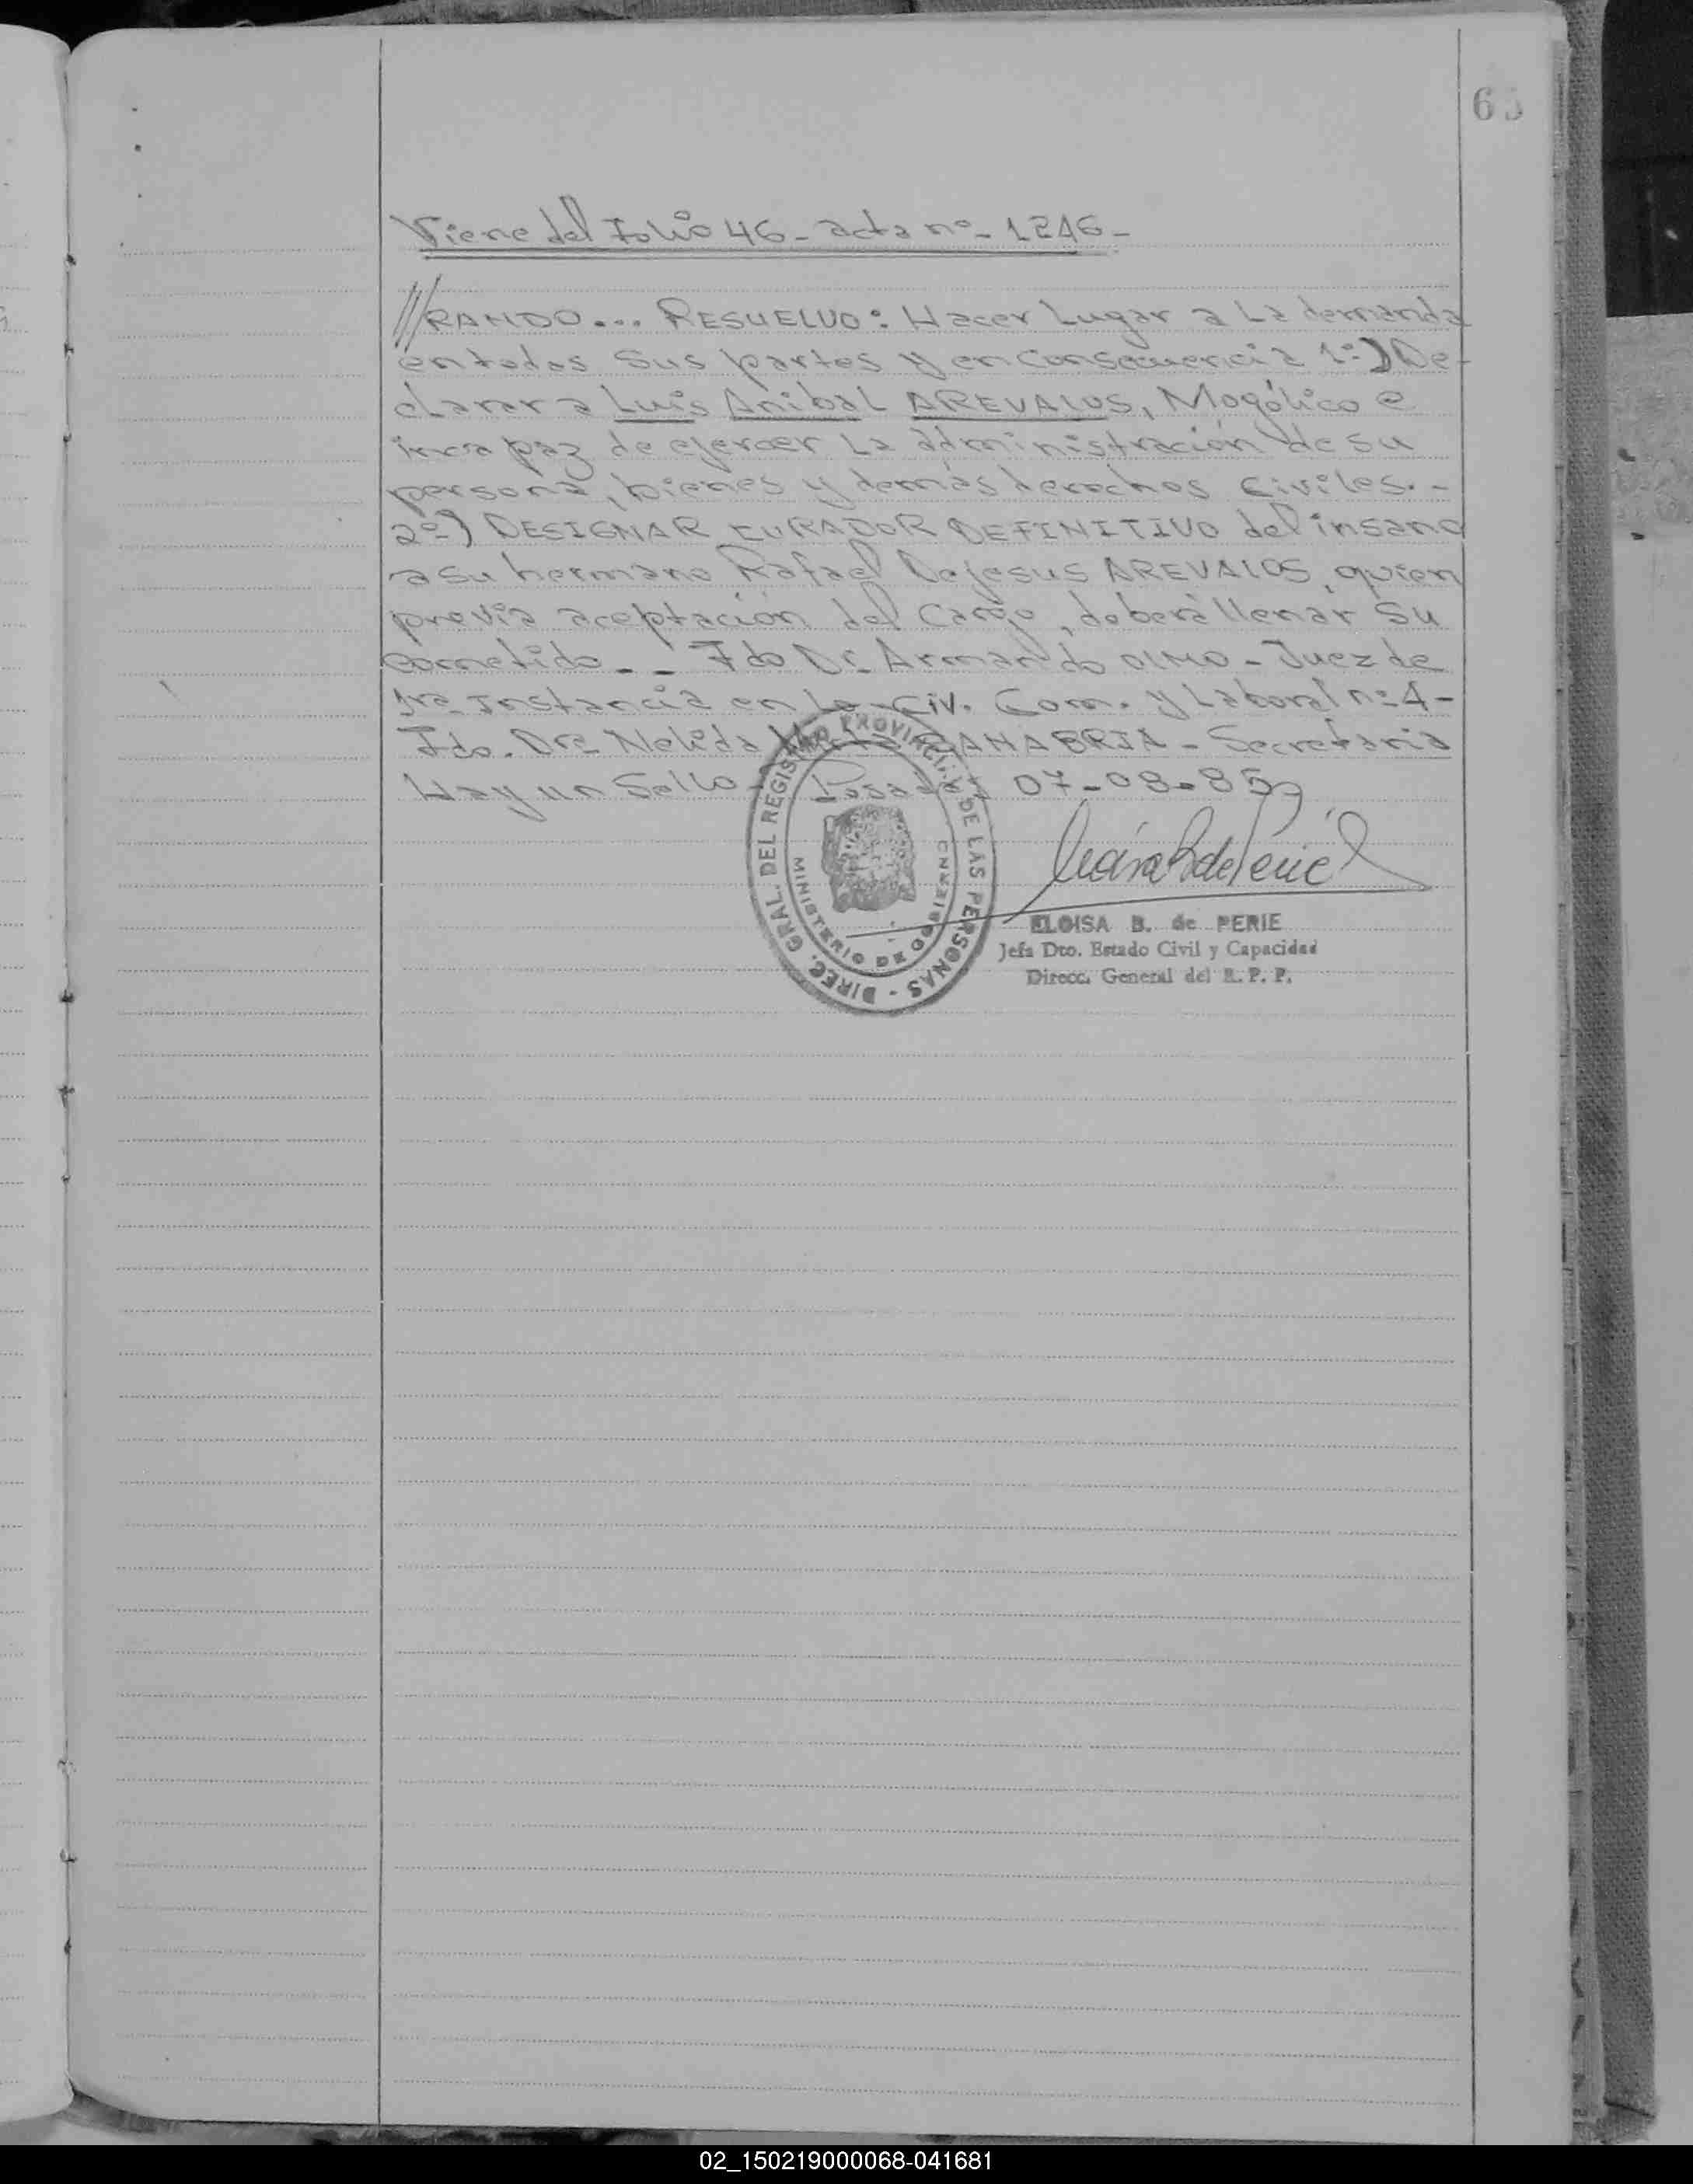 6
Viene del Folio 46 - acta nº - 1246 -
//RANDO... RESUELVO: Hacer Lugar a La demanda
en todas Sus partes y en Consecuencia 1º) De-
clarar a Luis Anibal AREVALOS, Mogólico e
incapaz de ejercer La administración de su
persona, bienes y demás derechos Civiles.-
2º) DESIGNAR CURADOR DEFINITIVO del insano
a su hermano Rafael Dejesus AREVALOS, quien
previa aceptación del Cargo, deberá llenar Su
cometido.- - Fdo Dr. Armando OLMO - Juez de
1ra Instancia en Lo Civ. Com. y Laboral nº 4 -
Fdo. Dra Nelida SANABRIA - Secretaria
Hay un Sello - Posadas 07-08-85
DIREC. GRAL. DEL REGISTRO PROVINCIAL DE LAS PERSONAS -
MINISTERIO DE GOBIERNO
ELOISA B. de PERIE
Jefa Dto. Estado Civil y Capacidad
Direcc. General del R. P. P.
02_150219000068-041681